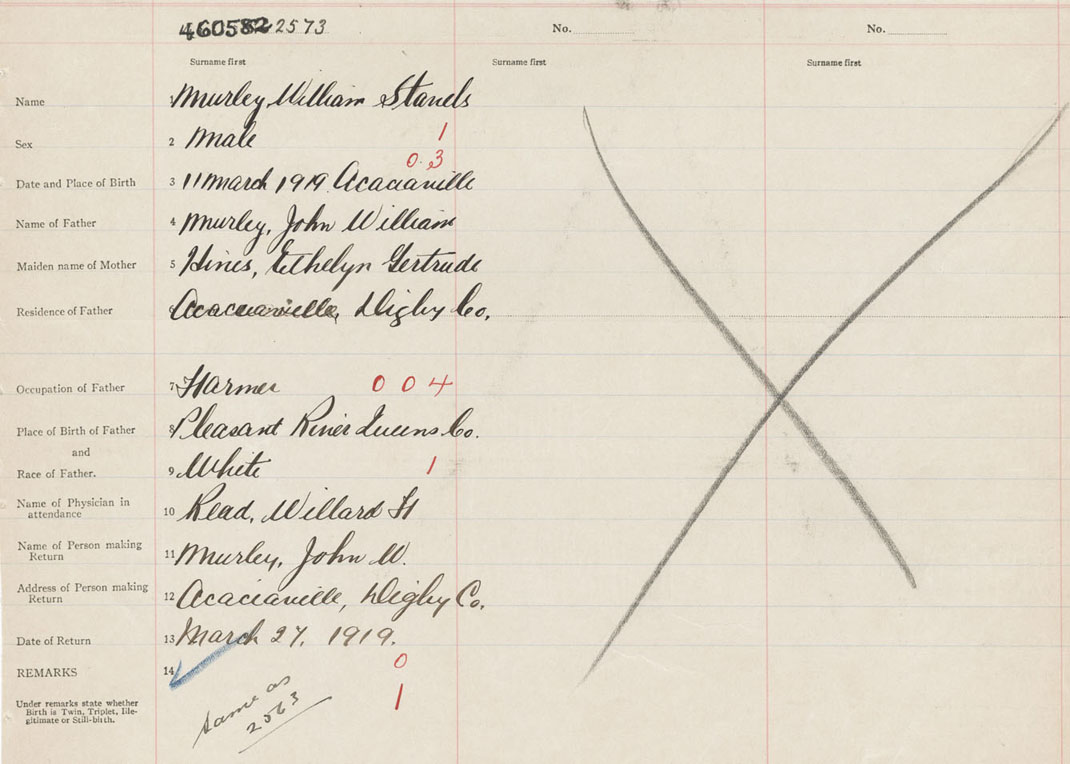 460582 2573 No. No.
Surname first Surname first Surname first
Name 1 Murley, William Stanels
Sex 2 Male 1
0 3
Date and Place of Birth 3 11 March 1919 Acaciaville
Name of Father 4 Murley, John William
Maiden name of Mother 5 Hines, Ethelyn Gertrude
Residence of Father 6 Acaciaville, Digby Co.
Occupation of Father 7 Farmer 0 0 4
Place of Birth of Father 8 Pleasant River Queens Co.
and
Race of Father. 9 White 1
Name of Physician in
attendance 10 Read, Willard H
Name of Person making
Return 11 Murley, John W.
Address of Person making
Return 12 Acaciaville, Digby Co.
Date of Return 13 March 27, 1919.
0
REMARKS 14
1
Under remarks state whether
Birth is Twin, Triplet, Ille-
gitimate or Still-birth.
Same as
2563